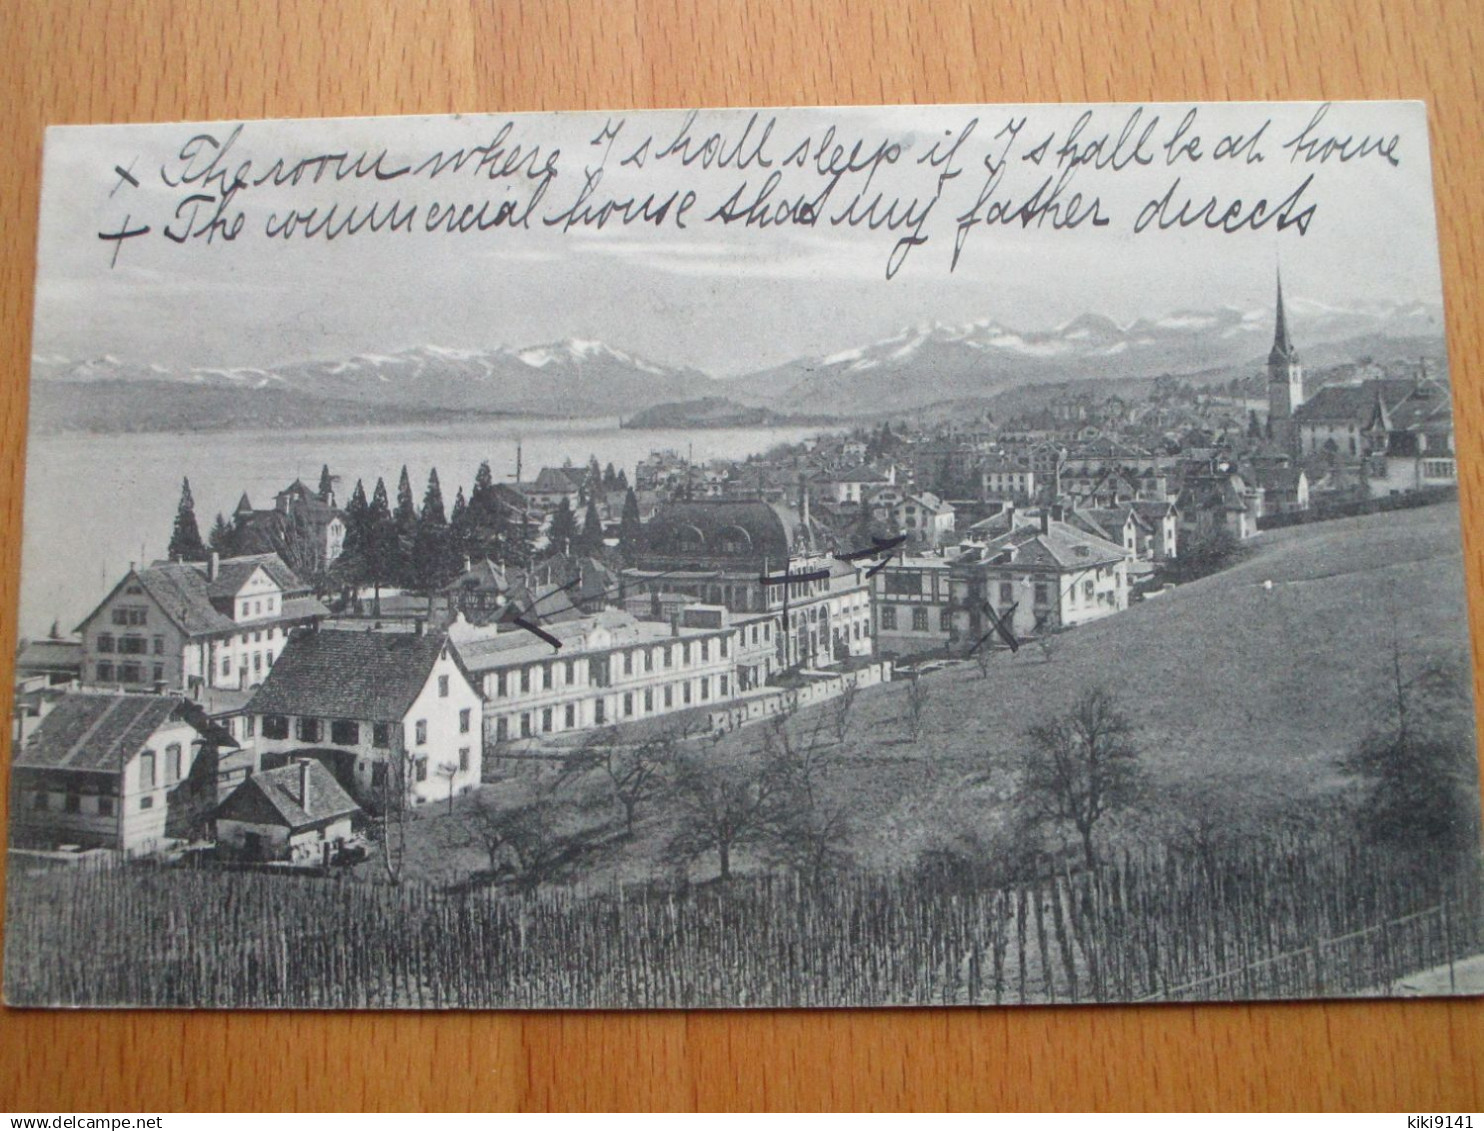 x The room where I shall sleep if I shall be at home
+ The commercial house that my father directs
delcampe.net
kiki9141